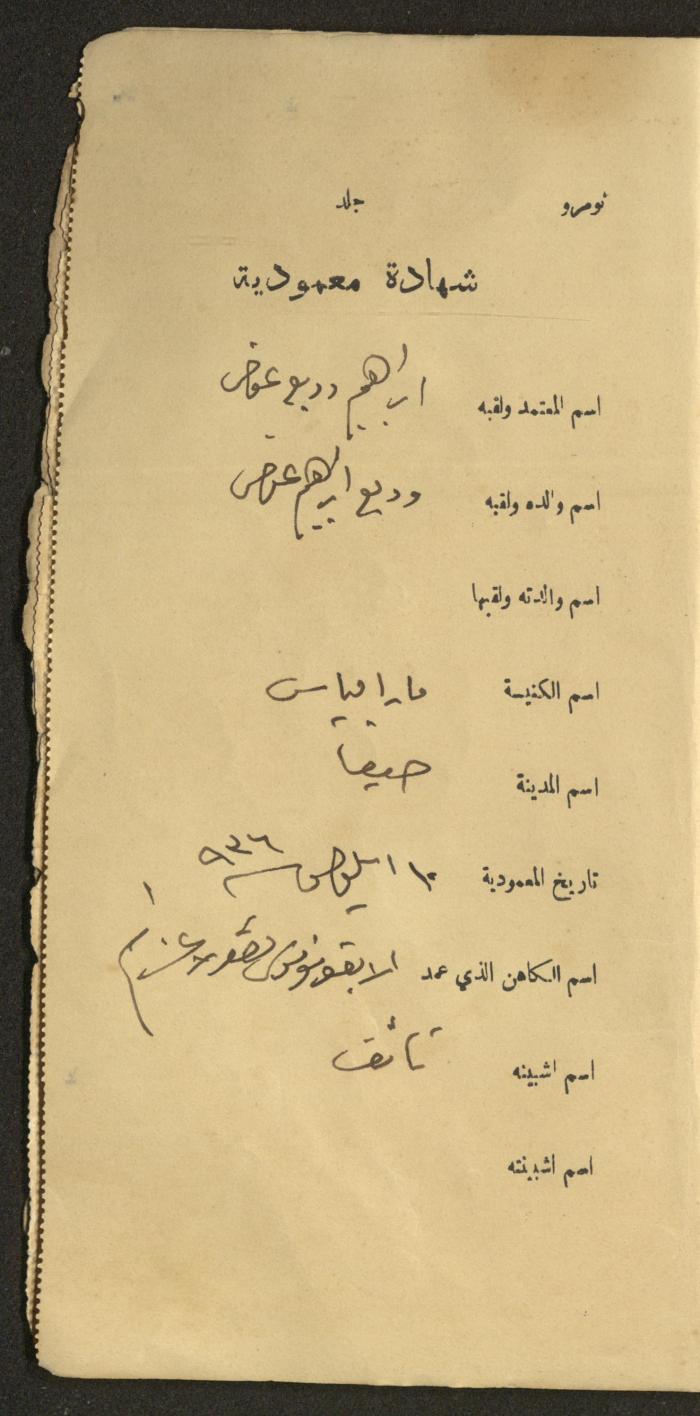 نومرو جلد
شهادة معمودية
اسم المعتمد ولقبه ابراهيم وديع عوض
اسم والده ولقبه وديع ابراهيم عوض
اسم والدته ولقبها
اسم الكنيسة مار الياس
اسم المدينة حيفا
تاريخ المعمودية ١٠ ايلول سنة ٩٣٦
اسم الكاهن الذي عمد الايقونوموس
اسم اشبينه
اسم اشبينته